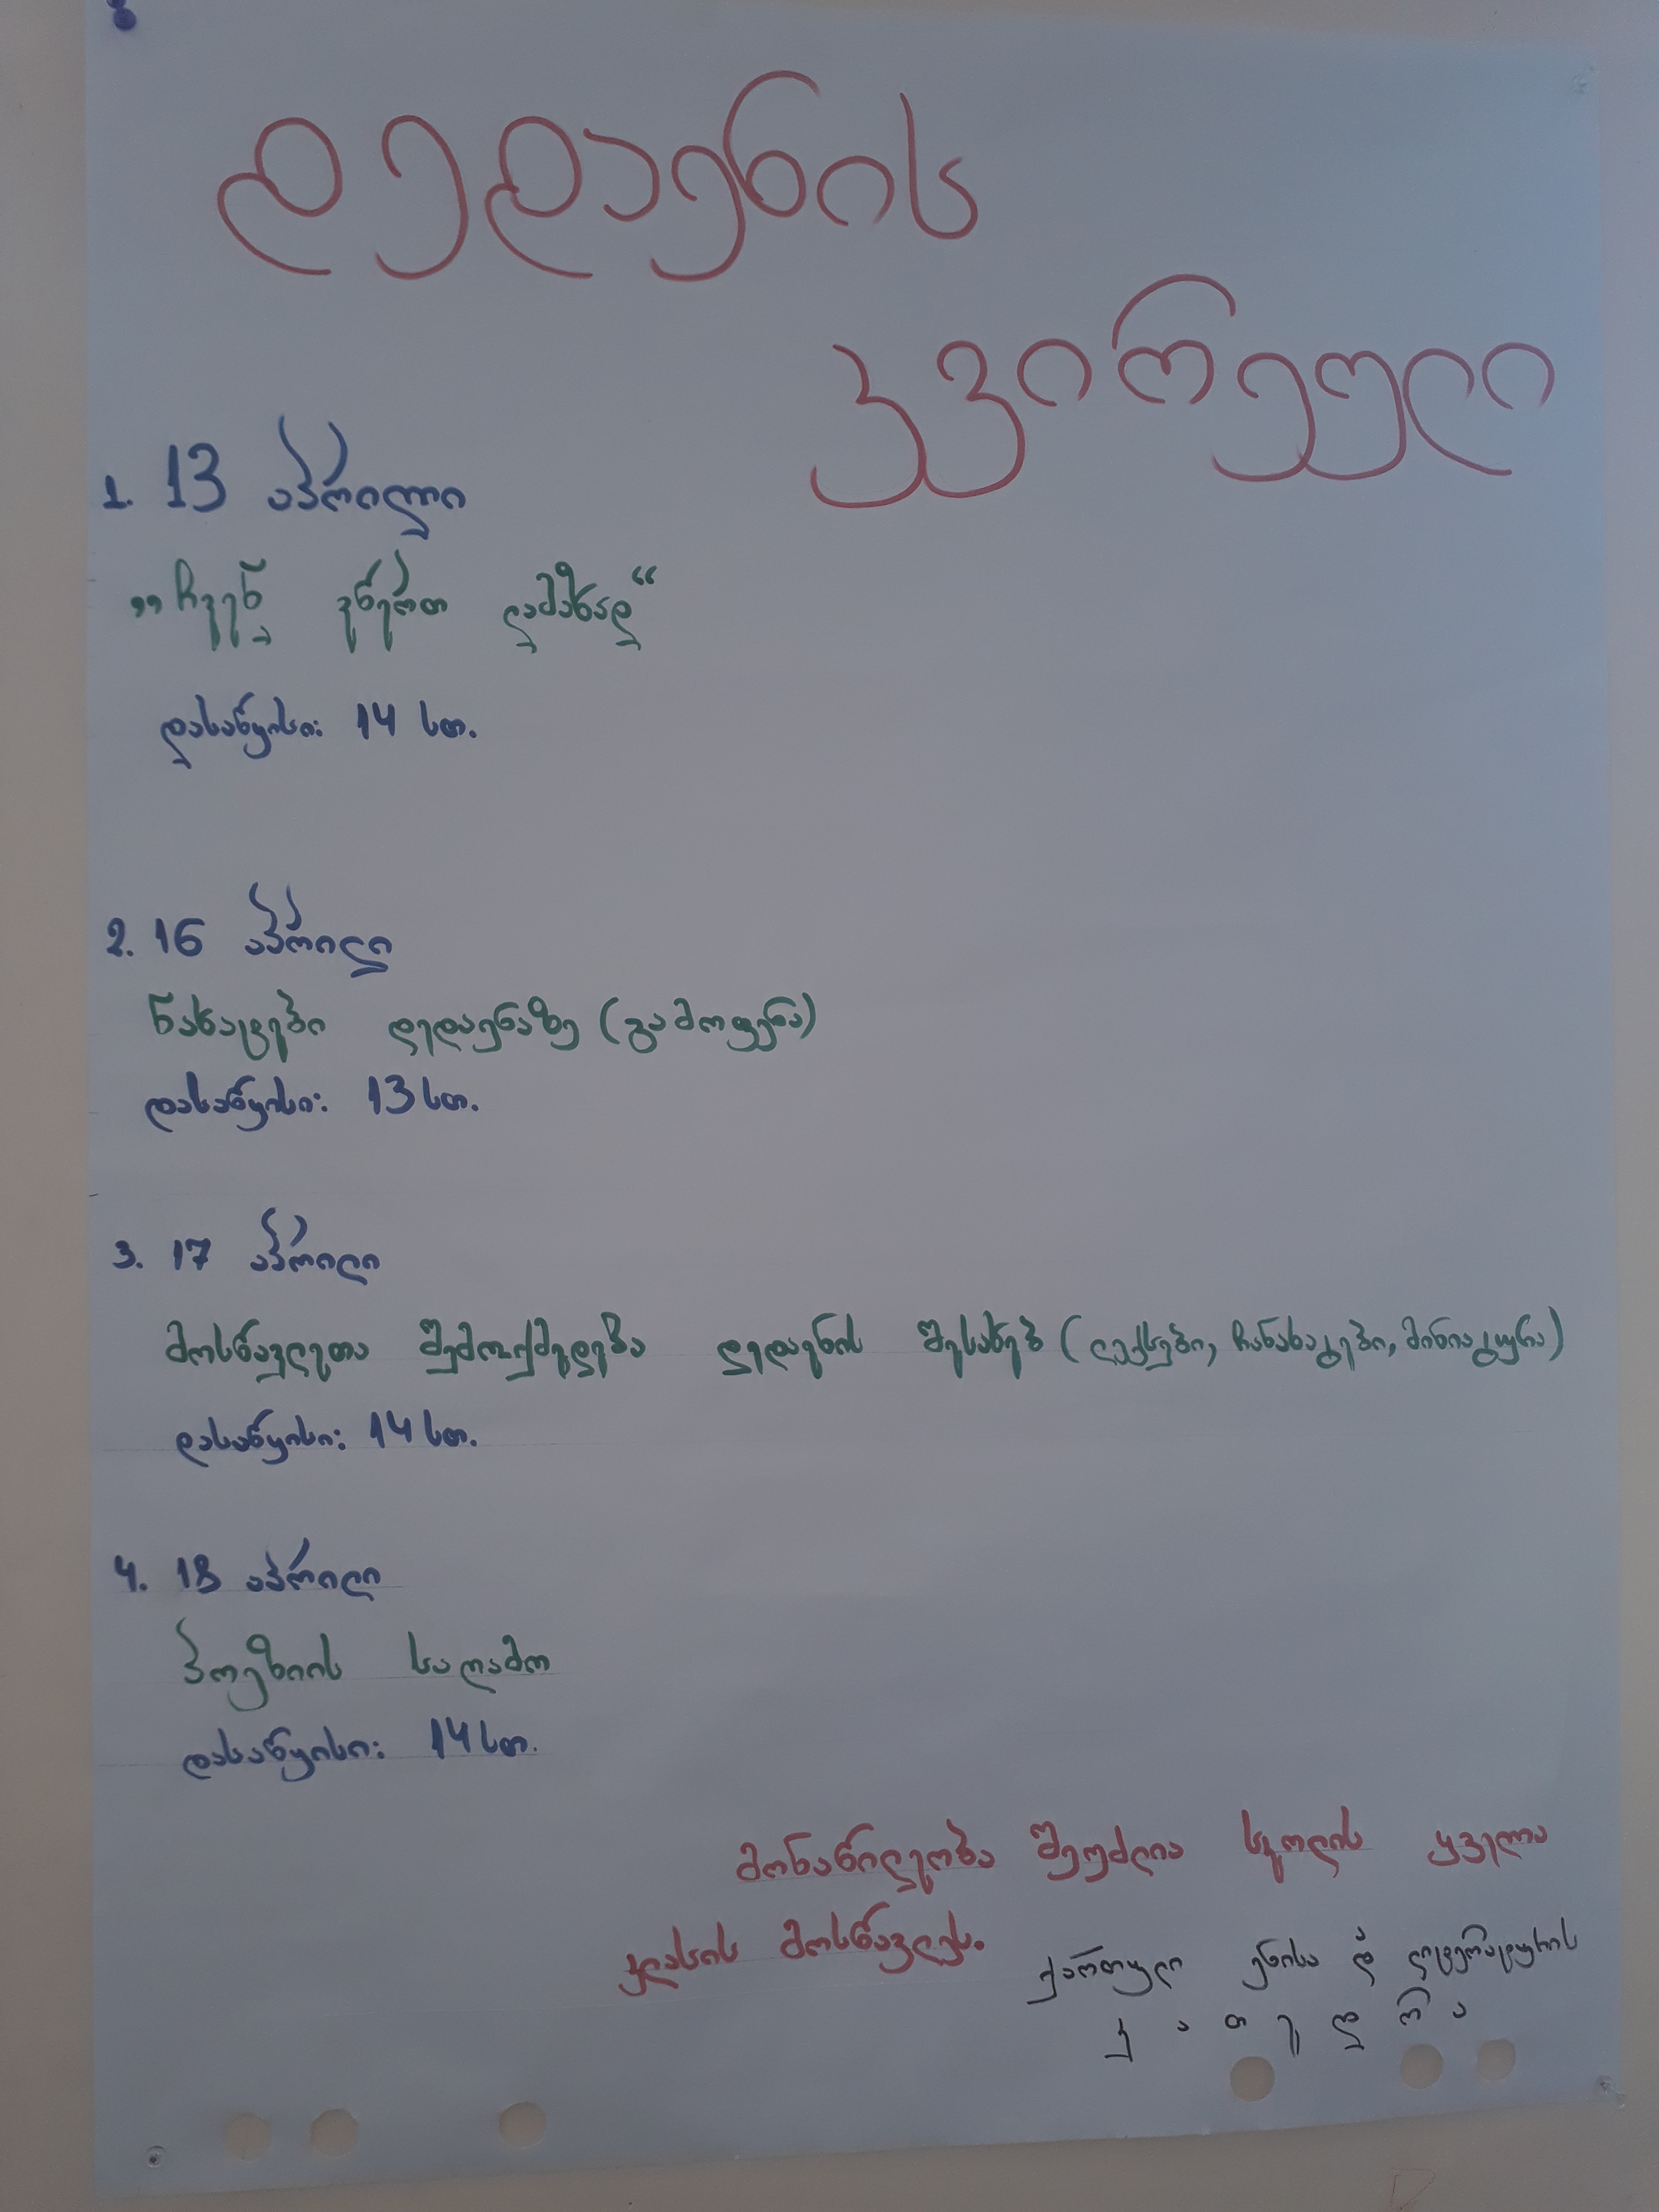 დედაენის
კვირეული
1. 13 აპრილი
„ჩვენ ვწერთ ლამაზად“
დასაწყისი: 14 სთ.
2. 16 აპრილი
ნახატები დედაენაზე (გამოფენა)
დასაწყისი: 13 სთ.
3. 17 აპრილი
მოსწავლეთა შემოქმედება დედაენის შესახებ (ლექსები, ჩანახატები, მინიატურა)
დასაწყისი: 14 სთ.
4. 18 აპრილი
პოეზიის საღამო
დასაწყისი: 14 სთ.
მონაწილეობა შეუძლია სკოლის ყველა
კლასის მოსწავლეს.
ქართული ენისა და ლიტერატურის
კათედრა